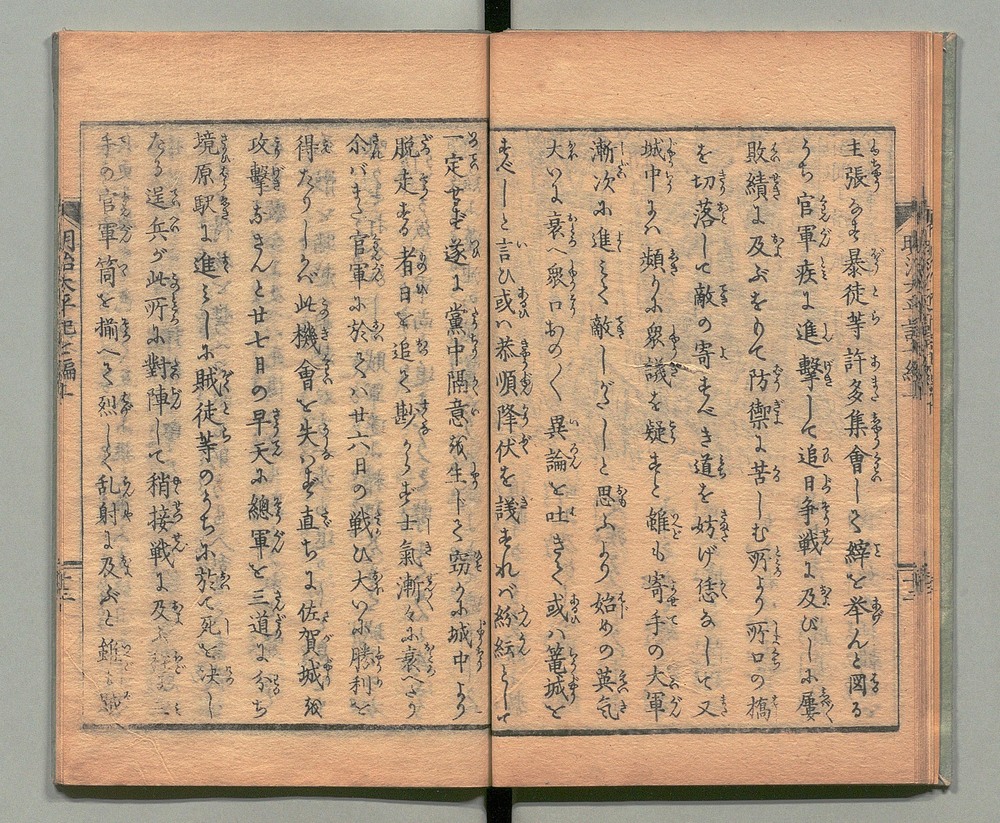 主張なす暴徒等許多集會して繂を挙んと図る
うち官軍疾に進撃して追日争戦に及びしに屢
敗績に及ぶをもて防禦に苦しむ所より所口の橋
を切落して敵の寄すべき道を妨げ恁なして又
城中には頻りに衆議を疑すと雖も寄手の大軍
漸次に進みて敵しがたしと思ふより始めの英気
大いに衰へ衆口おの〱異論を吐きて或ハ篭城を
すべしと言ひ或ハ恭順降伏を議すれバ紛紜として
一定せず遂に黨中隔意を生して窃かに城中より
脱走する者日を追て尠からず士氣漸々に衰へたり
尒バまた官軍に於てハ廿六日の戦ひ大いに勝利を
得たりしかバ此機會を失ハず直ちに佐賀城を
攻撃なさんと廿七日の早天に總軍を三道に分ち
境原駅に進みしに賊徒等のうちに於て死を決し
たる逞兵が此所に對陣して稍接戦に及
手の官軍筒を揃へて烈しく乱射に及ぶと雖も賊
明治太平記七編
十二